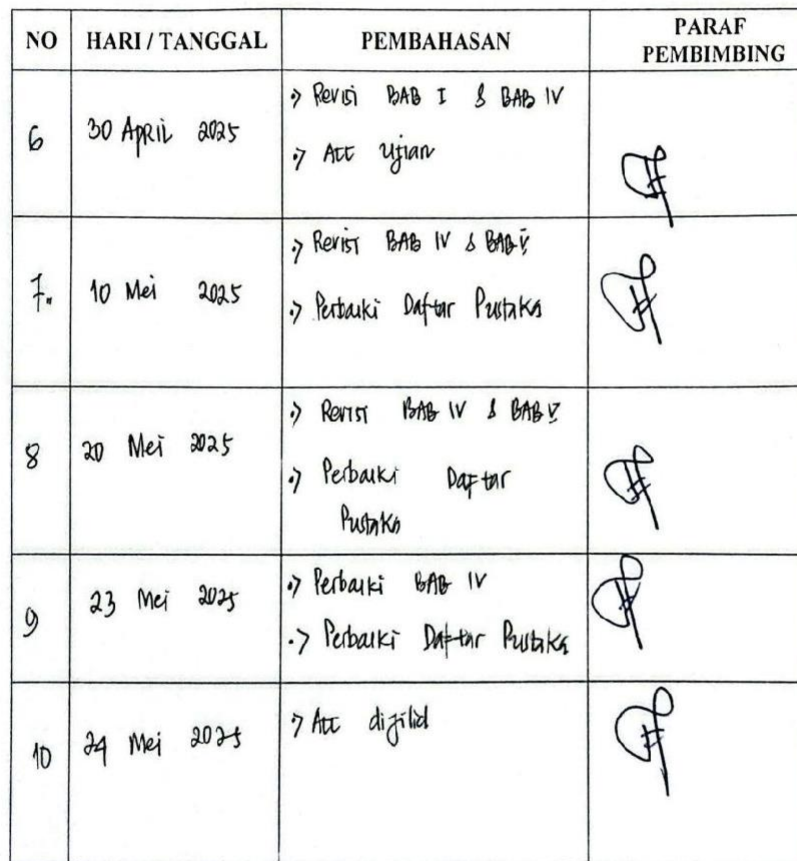 NO HARI / TANGGAL PEMBAHASAN PARAF PEMBIMBING
6 30 April 2025 Revisi BAB I & BAB IV
Acc Ujian
7. 10 Mei 2025 Revisi BAB IV & BAB V
Perbaiki Daftar Pustaka
8 20 Mei 2025 Revisi BAB IV & BAB V
Perbaiki Daftar
Pustaka
9 23 Mei 2025 Perbaiki BAB IV
Perbaiki Daftar Pustaka
10 24 Mei 2025 Acc dijilid